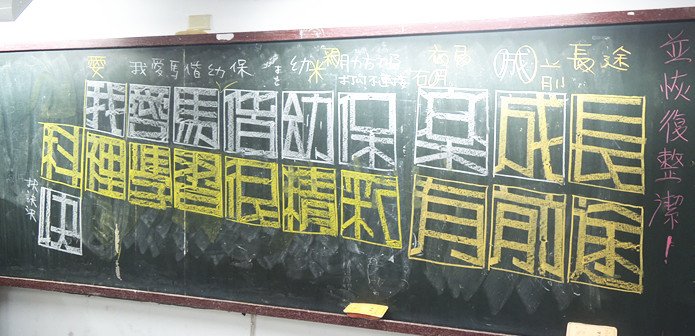 愛 我愛馬偕幼保 幼 米 成 前 長途
我愛馬偕幼保 成長
科裡學習很精彩 有前途
快
並恢復整潔！